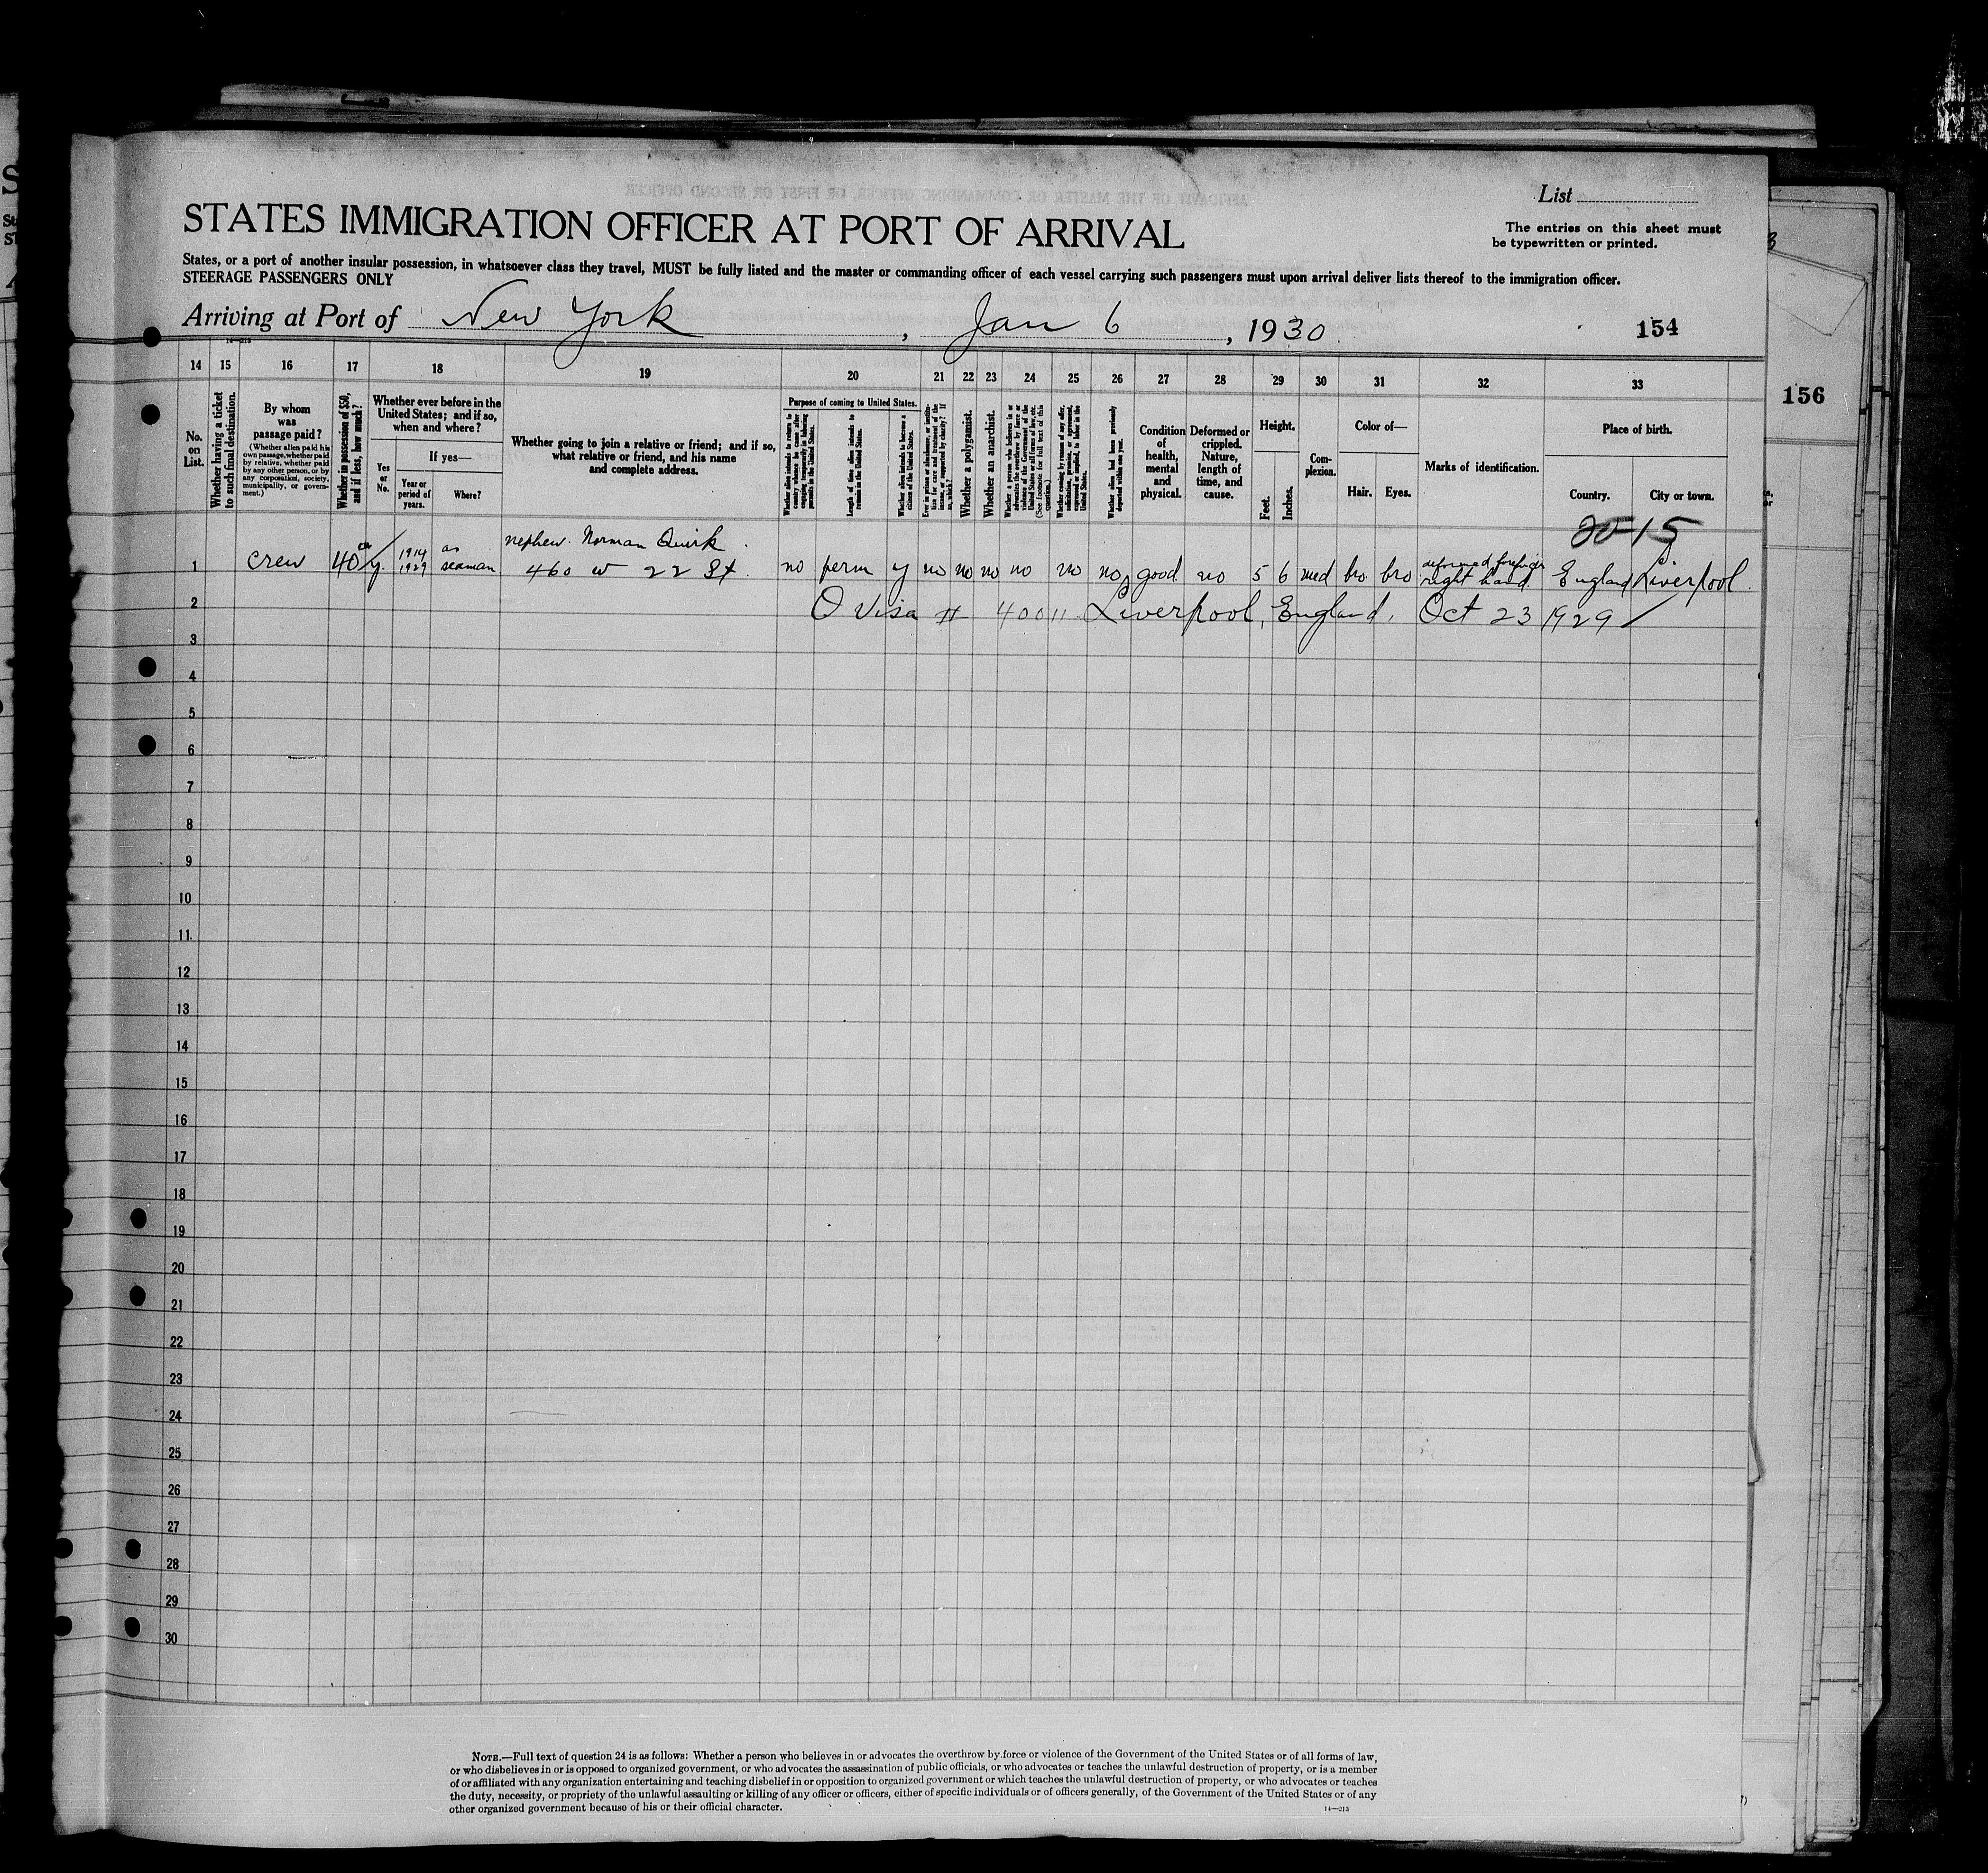 List
STATES IMMIGRATION OFFICER AT PORT OF ARRIVAL
The entries on this sheet must
be typewritten or printed.
States, or a port of another insular possession, in whatsoever class they travel, MUST be fully listed and the master or commanding officer of each vessel carrying such passengers must upon arrival deliver lists thereof to the immigration officer.
STEERAGE PASSENGERS ONLY
Arriving at Port of New York, Jan 6, 1930
154
156
14 15 16 17 18 19 20 21 22 23 24 25 26 27 28 29 30 31 32 33
No. on List.
Whether having a ticket to such final destination.
By whom was passage paid?
(Whether alien paid his own passage, whether paid by relative, whether paid by any other person, or by any corporation, society, municipality, or government.)
Whether in possession of $50, and if less, how much?
Whether ever before in the United States; and if so, when and where?
Yes or No.
If yes—
Year or period of years.
Where?
Whether going to join a relative or friend; and if so, what relative or friend, and his name and complete address.
Purpose of coming to United States.
Whether alien intends to return to country whence he came after engaging temporarily in laboring pursuits in the United States.
Length of time alien intends to remain in the United States.
Whether alien intends to become a citizen of the United States.
Ever in prison or almshouse, or institution for care and treatment of the insane, or supported by charity? If so, which?
Whether a polygamist.
Whether an anarchist.
Whether a person who believes in or advocates the overthrow by force or violence of the Government of the United States or all forms of law, etc. (See footnote for full text of this question.)
Whether coming by reason of any offer, solicitation, promise, or agreement, expressed or implied, to labor in the United States.
Whether alien had been previously deported within one year.
Condition of health, mental and physical.
Deformed or crippled. Nature, length of time, and cause.
Height.
Feet. Inches.
Complexion.
Color of—
Hair. Eyes.
Marks of identification.
Place of birth.
Country. City or town.
20-15
nephew. Norman Quirk.
1 crew 40 y. 1914 1929 as seaman 460 w 22 St. no perm y no no no no no no good no 5 6 med bro bro deformed forefinger right hand England Liverpool.
2 Q Visa # 40011 Liverpool, England, Oct 23 1929
3
4
5
6
7
8
9
10
11
12
13
14
15
16
17
18
19
20
21
22
23
24
25
26
27
28
29
30
NOTE.—Full text of question 24 is as follows: Whether a person who believes in or advocates the overthrow by force or violence of the Government of the United States or of all forms of law,
or who disbelieves in or is opposed to organized government, or who advocates the assassination of public officials, or who advocates or teaches the unlawful destruction of property, or is a member
of or affiliated with any organization entertaining and teaching disbelief in or opposition to organized government or which teaches the unlawful destruction of property, or who advocates or teaches
the duty, necessity, or propriety of the unlawful assaulting or killing of any officer or officers, either of specific individuals or of officers generally, of the Government of the United States or of any
other organized government because of his or their official character.
14—213